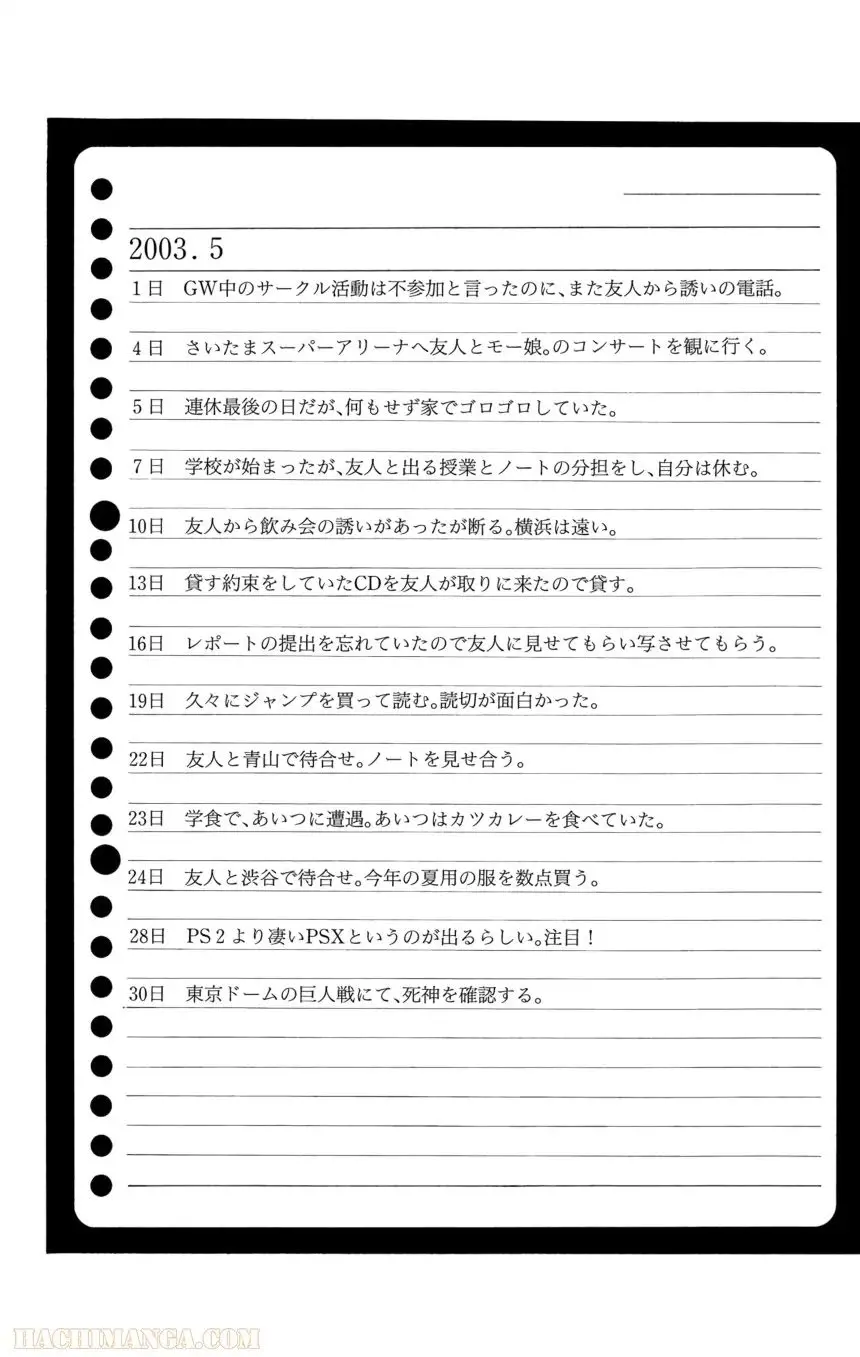 2003. 5
1日 GW中のサークル活動は不参加と言ったのに、また友人から誘いの電話。
4日 さいたまスーパーアリーナへ友人とモー娘。のコンサートを観に行く。
5日 連休最後の日だが、何もせず家でゴロゴロしていた。
7日 学校が始まったが、友人と出る授業とノートの分担をし、自分は休む。
10日 友人から飲み会の誘いがあったが断る。横浜は遠い。
13日 貸す約束をしていたCDを友人が取りに来たので貸す。
16日 レポートの提出を忘れていたので友人に見せてもらい写させてもらう。
19日 久々にジャンプを買って読む。読切が面白かった。
22日 友人と青山で待合せ。ノートを見せ合う。
23日 学食で、あいつに遭遇。あいつはカツカレーを食べていた。
24日 友人と渋谷で待合せ。今年の夏用の服を数点買う。
28日 PS2より凄いPSXというのが出るらしい。注目！
30日 東京ドームの巨人戦にて、死神を確認する。
HACHIMANGA.COM